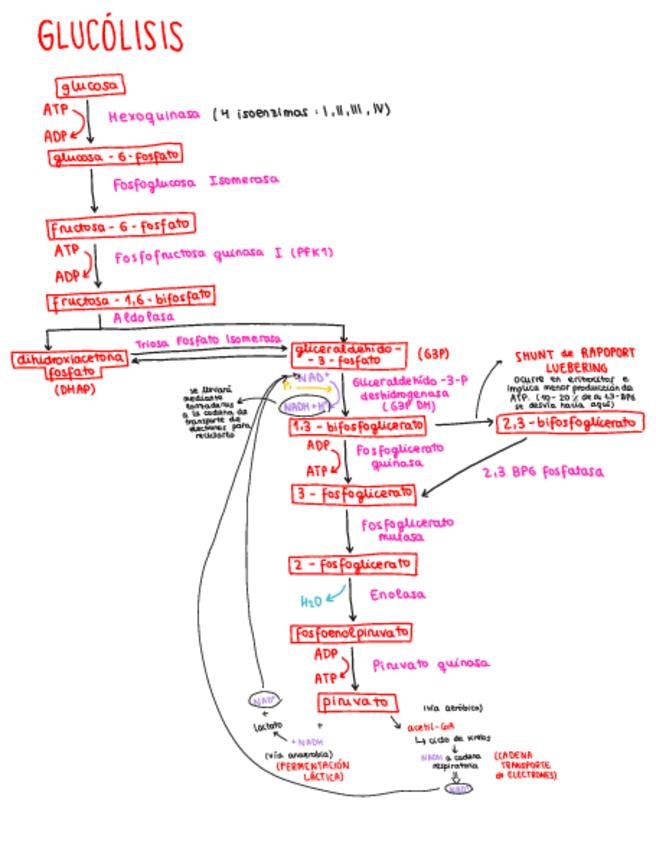 GLUCÓLISIS
glucosa
ATP
Hexoquinasa (4 isoenzimas : I, II, III, IV)
ADP
glucosa - 6 - fosfato
Fosfoglucosa Isomerasa
fructosa - 6 - fosfato
ATP
Fosfofructosa quinasa I (PFK1)
ADP
fructosa - 1,6 - bifosfato
Aldolasa
Triosa Fosfato Isomerasa
dihidroxiacetona
fosfato
(DHAP)
gliceraldehido -
- 3 - fosfato
(G3P)
NAD+
Pi
NADH + H+
Gliceraldehido -3-P
deshidrogenasa
(G3P DH)
se llevará
mediante
lanzaderas
a la cadena de
transporte de
electrones para
reciclarlo
SHUNT de RAPOPORT
LUEBERING
Ocurre en eritrocitos e
implica menor producción de
ATP. (10 - 20 % de la 1,3-BPG
se desvía hacia aquí)
1,3 - bifosfoglicerato
2,3 - bifosfoglicerato
ADP
Fosfoglicerato
quinasa
ATP
2,3 BPG fosfatasa
3 - fosfoglicerato
Fosfoglicerato
mutasa
2 - fosfoglicerato
H2O
Enolasa
fosfoenolpiruvato
ADP
Piruvato quinasa
ATP
piruvato
NAD+
+
lactato
+
+ NADH
(vía anaerobia)
(FERMENTACIÓN
LÁCTICA)
(vía aeróbica)
acetil-CoA
↳ ciclo de Krebs
NADH a cadena
respiratoria
(CADENA
TRANSPORTE
de ELECTRONES)
NAD+